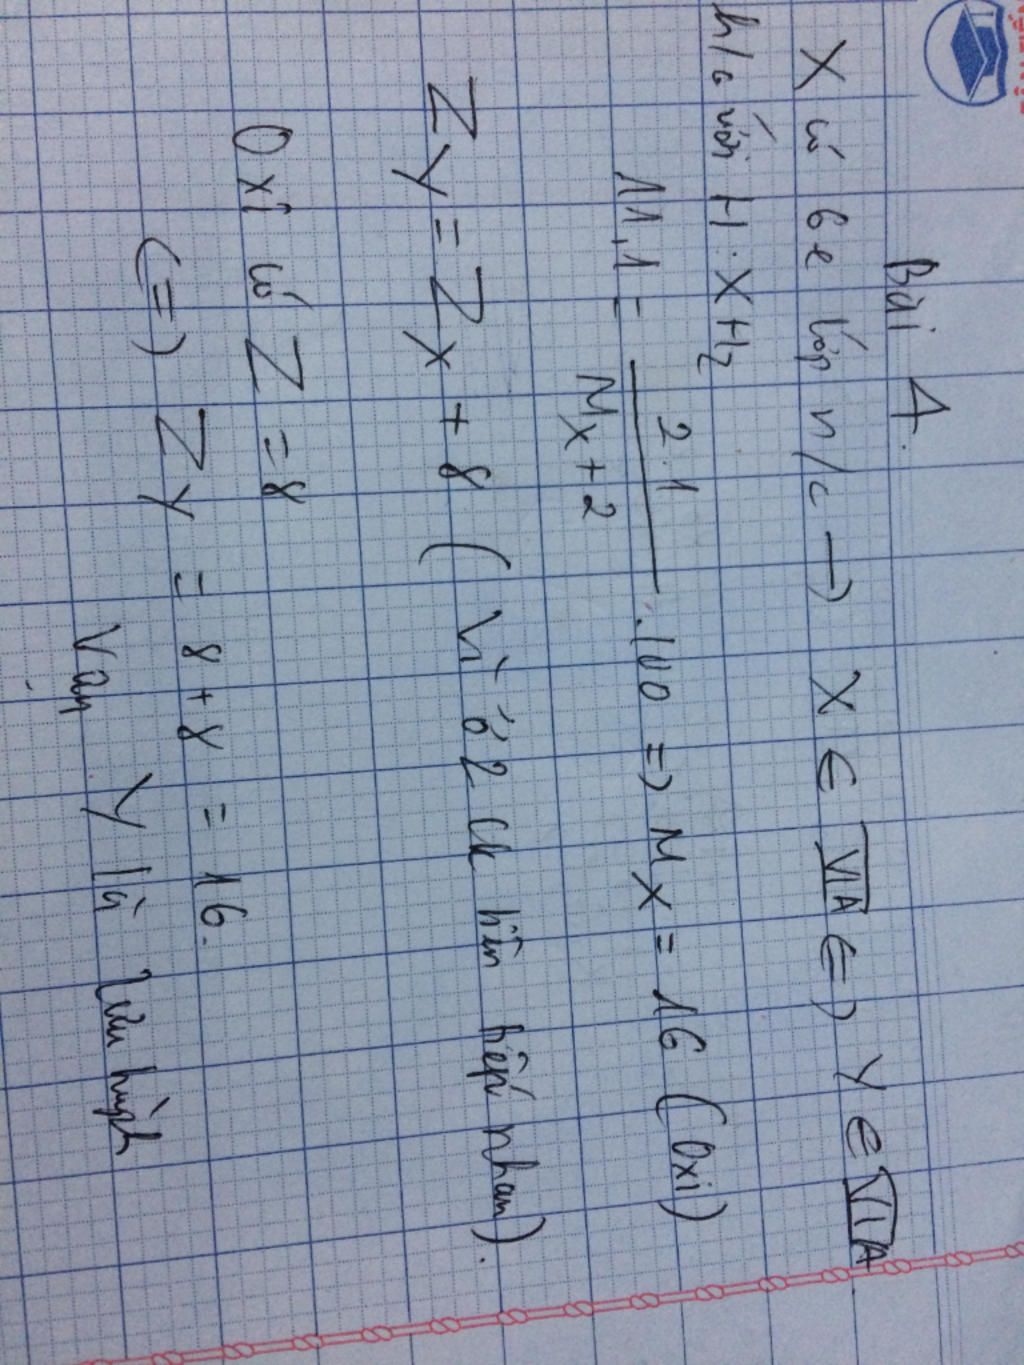 Bài 4.
X có 6e lớp n/c → X ∈ VIA (=) Y ∈ VIA
h/c với H: XH₂
11,1 = 2.1 / Mx+2 .100 => Mx = 16 (Oxi)
Zy = Zx + 8 (vì ở 2 ck liên tiếp nhau).
Oxi có Z = 8
(=) Zy = 8 + 8 = 16.
Vậy Y là lưu huỳnh